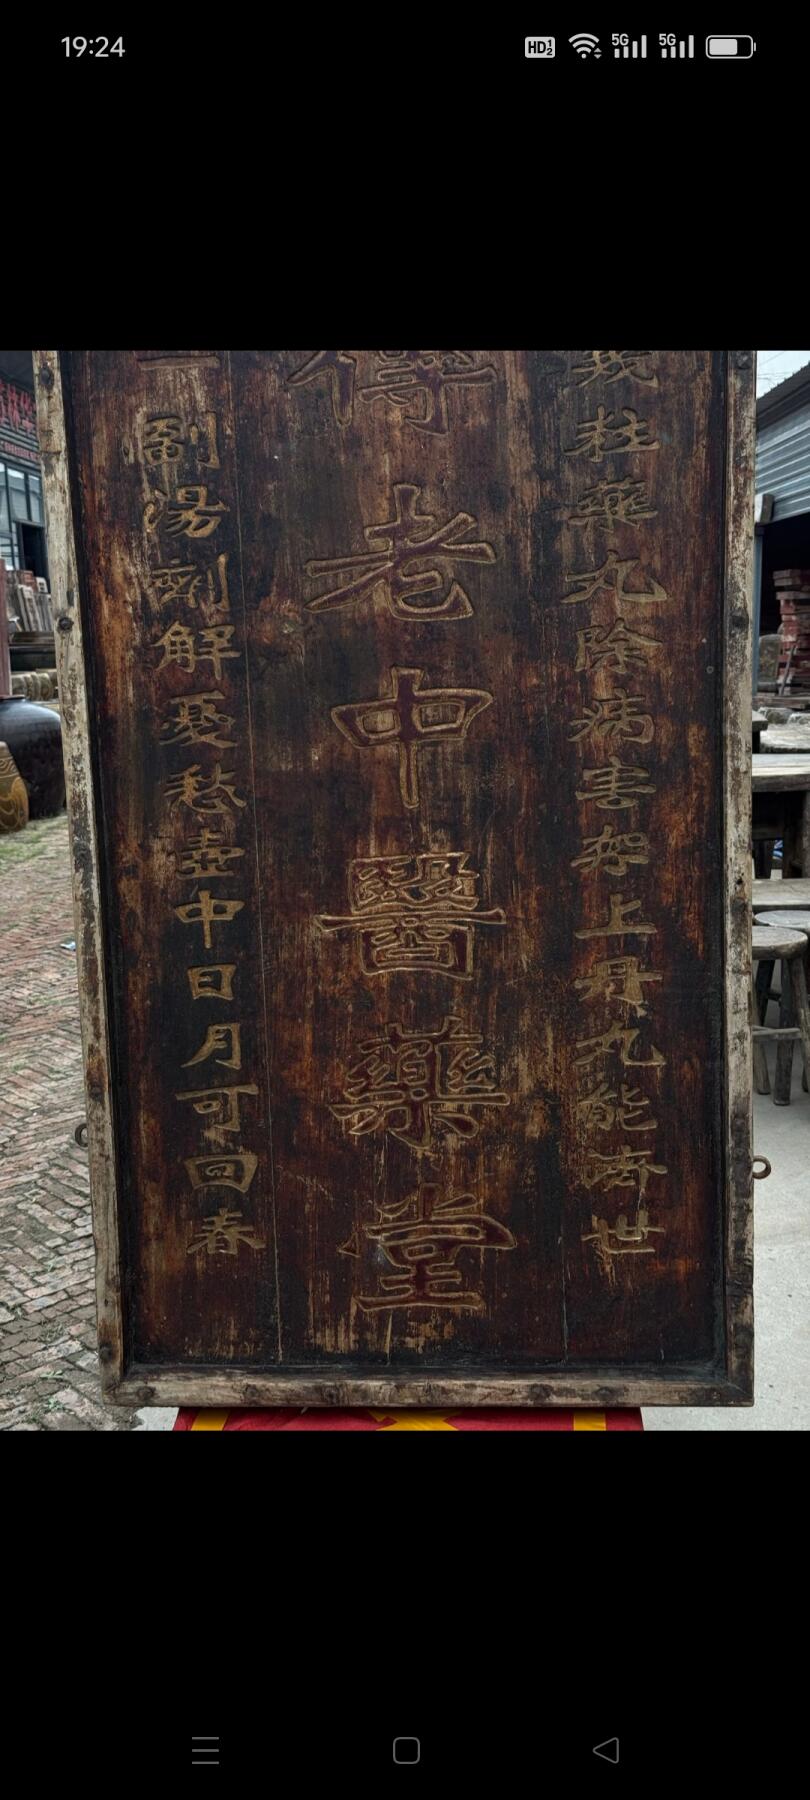 19:24
HD 5G 5G
粒藥丸除病害架上丹丸能濟世
傳老中醫藥堂
一副湯劑解憂愁壺中日月可回春